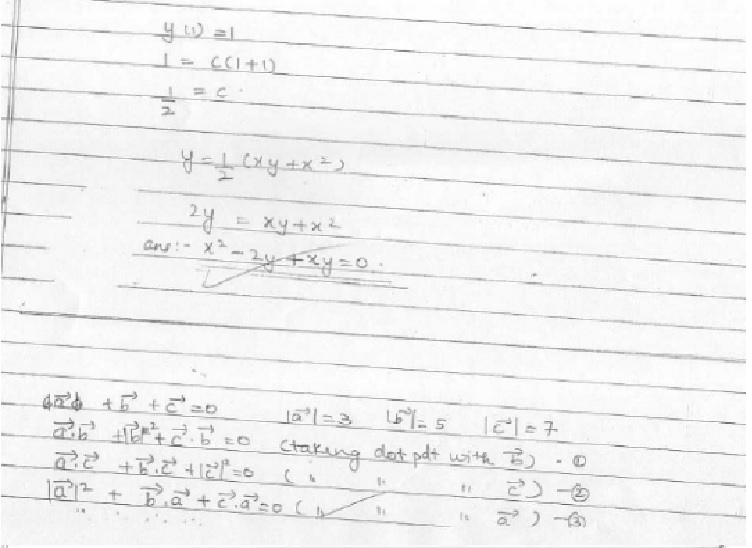 y(1) = 1
1 = c(1+1)
1/2 = c.
y = 1/2 (xy + x²)
2y = xy + x²
ans:- x² - 2y + xy = 0.
a⃗ + b⃗ + c⃗ = 0 |a⃗| = 3 |b⃗| = 5 |c⃗| = 7
a⃗.b⃗ + |b⃗|² + c⃗.b⃗ = 0 (taking dot pdt with b⃗) - ①
a⃗.c⃗ + b⃗.c⃗ + |c⃗|² = 0 ( " " " c⃗) - ②
|a⃗|² + b⃗.a⃗ + c⃗.a⃗ = 0 ( " " " a⃗) - ③